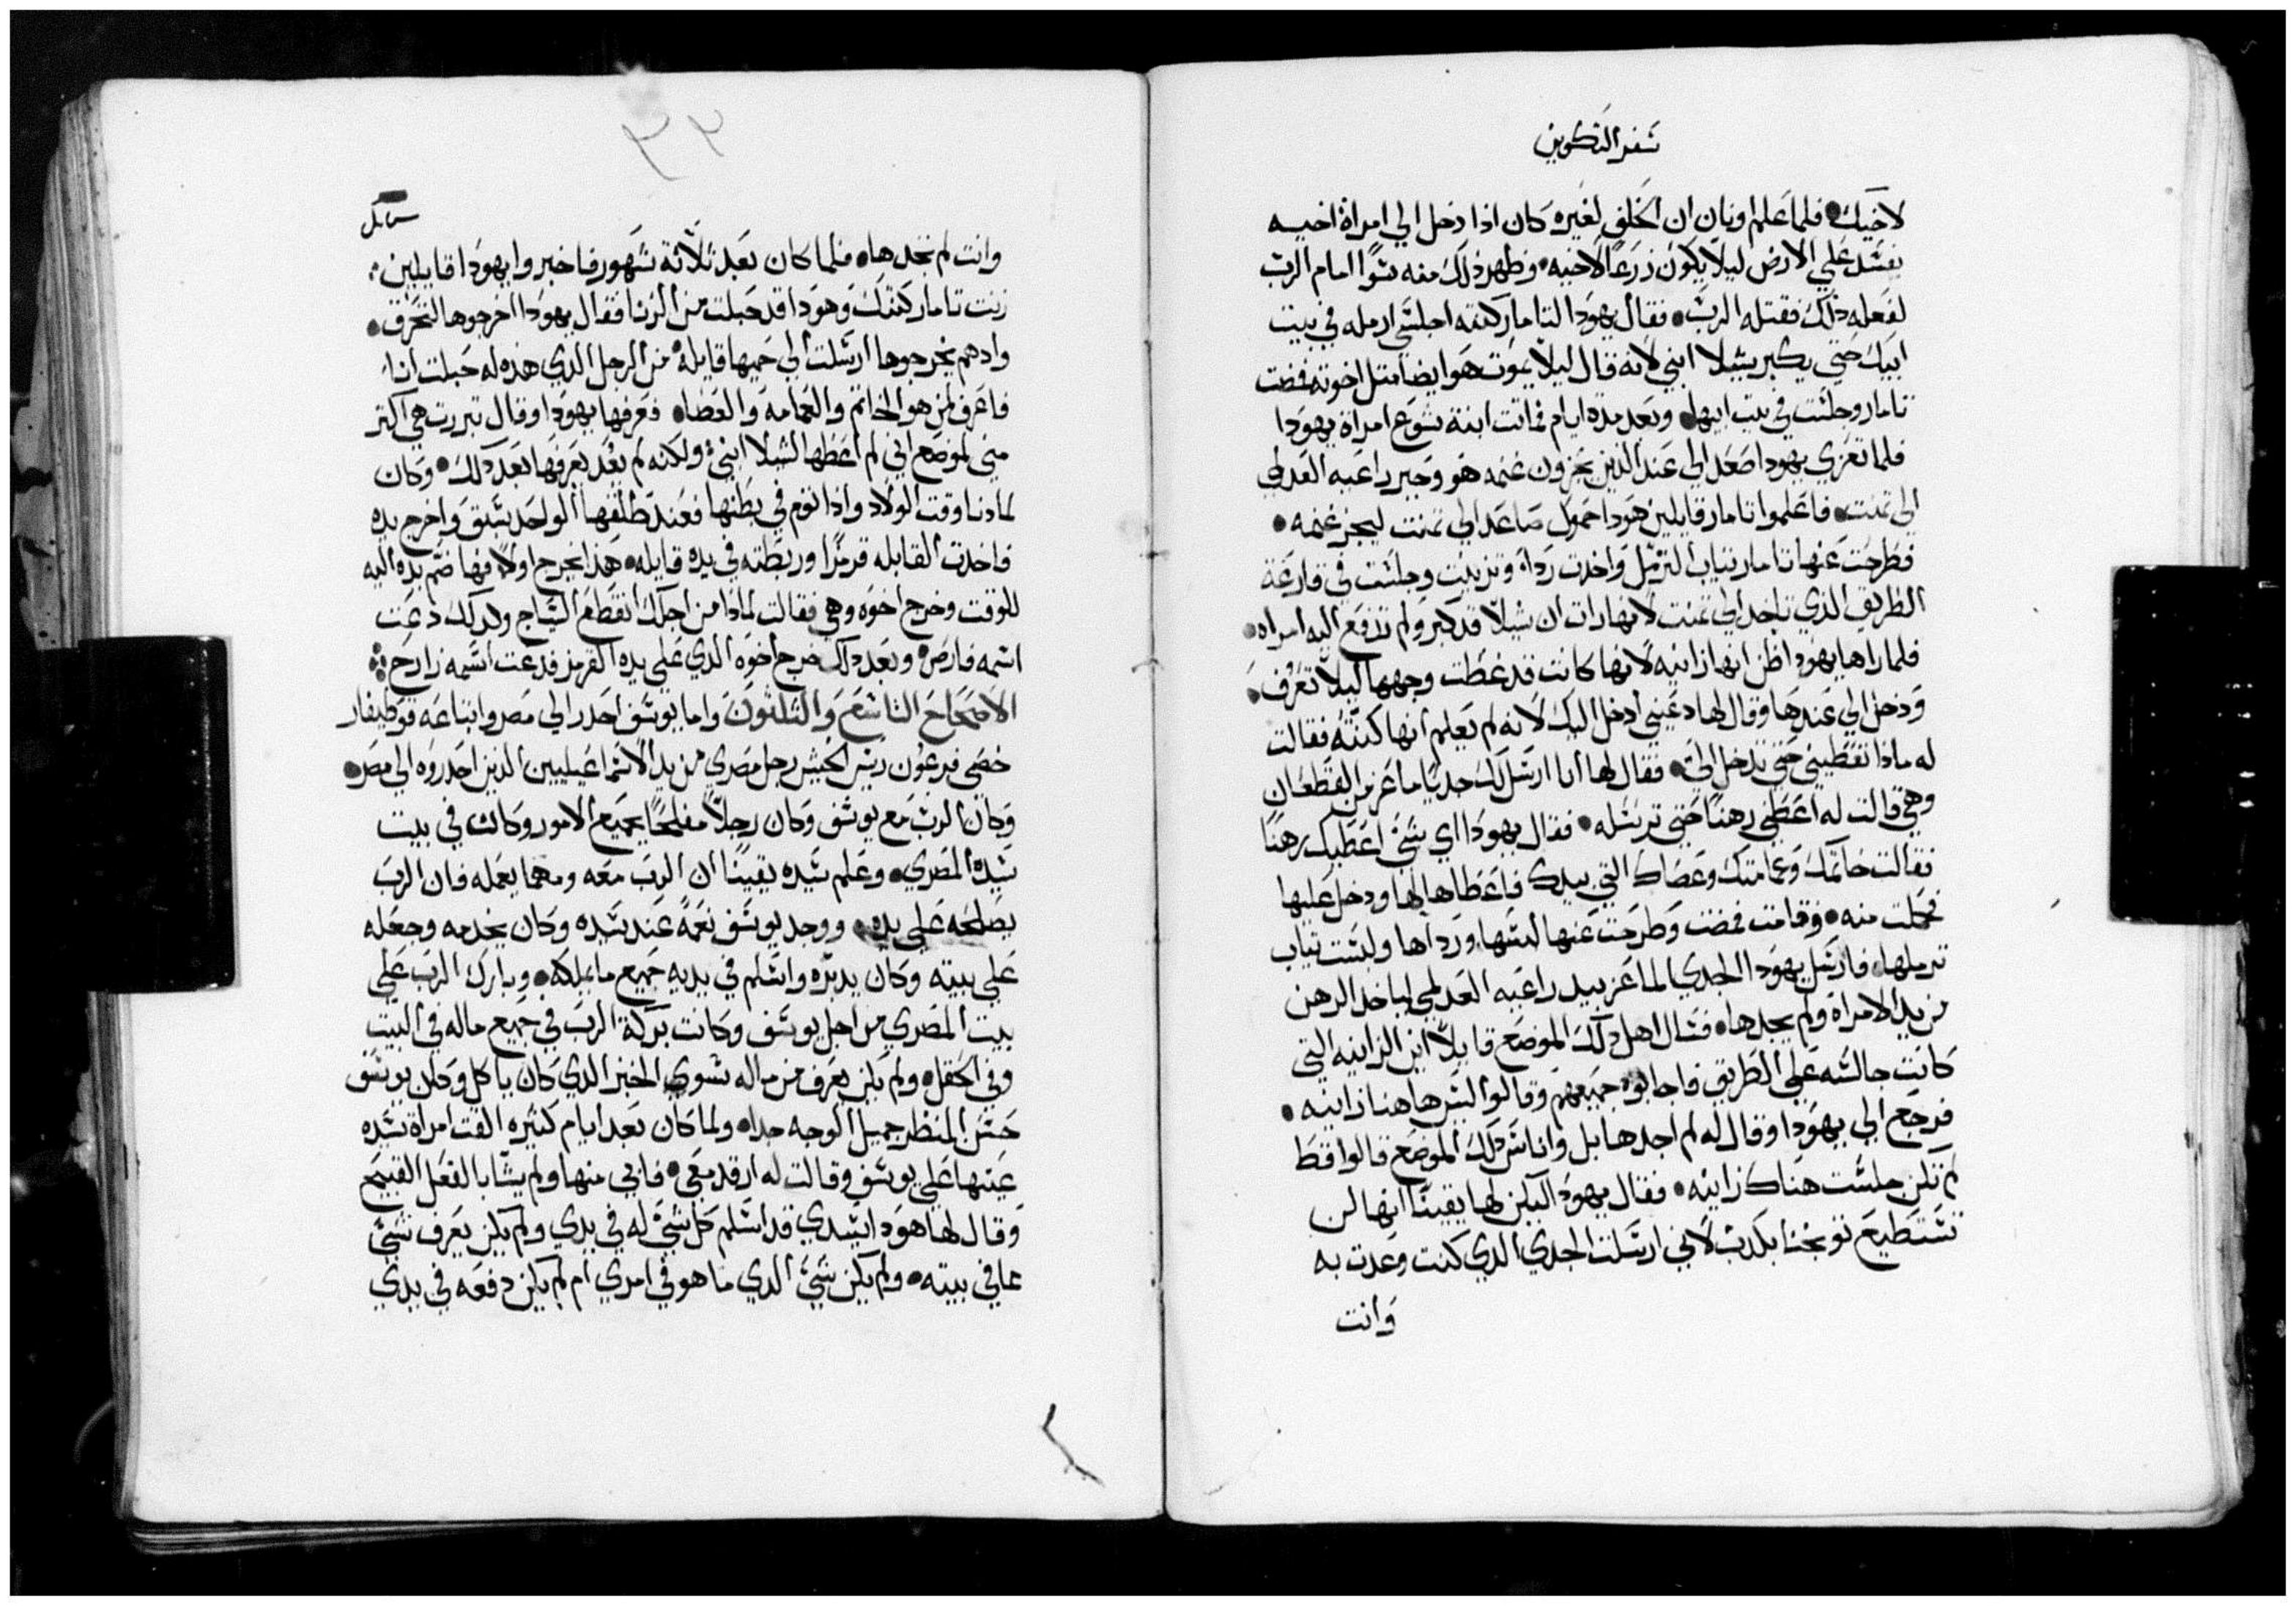 سفر التكوين
لاخيك فلما علم اونان ان الخلف لغيره كان اذا دخل الي امراة اخيه
يفسد علي الارض ليلا يكون زرعًا لاخيه وظهر ذلك منه سوًا امام الرب
لفعله ذلك فقتله الرب فقال يهودا لتامار كنته اجلسي ارمله في بيت
ابيك حتي يكبر شيلا ابني لانه قال ليلا يموت هو ايضا متل اخوته فمضت
تامار وجلست في بيت ابيها وبعد مدة ايام ماتت ابنة شوع امراة يهودا
فلما تعزي يهودا صعد الي عند الذين يجزون غنمه هو وحير راعيه العدلمي
الي تمنت فاعلموا تامار قايلين هودا حموك صاعد الي تمنت ليجز غنمه
فطرحت عنها تامار تياب الترمل واخدت رداة وتزينت وجلست في قارعة
الطريق الذي تاخد الي تمنت لانها رات ان شيلا قد كبر ولم تدفع اليه امراه
فلما راها يهودا ظن انها زانيه لانها كانت قد غطت وجهها ليلا تعرف
ودخل الي عندها وقال لها دعيني ادخل اليك لانه لم يعلم انها كنته فقالت
له مادا تعطيني حتي تدخل الي فقال لها انا ارسل لك جديًا ماعز من القطعان
وهي قالت له اعطني رهنًا حتي ترسله فقال يهودا اي شي اعطيك رهنًا
فقالت خاتمك وعمامتك وعصاك التي بيدك فاعطاها لها ودخل عليها
فحملت منه وقامت فمضت وطرحت عنها لبسها ورداها ولبست تياب
ترملها فارسل يهودا الجدي الماعز بيد راعيه العدلمي لياخد الرهن
من يد الامراة ولم يجدها فسال اهل دلك الموضع قايلًا اين الزانيه التي
كانت جالسه علي الطريق فاجابوه جميعهم وقالوا ليس هاهنا زانيه
فرجع الي يهودا وقال له لم اجدها بل واناس دلك الموضع قالوا قط
لم تكن جلست هناك زانيه فقال يهودا ليكن لها يقينًا انها لن
تستطيع توبخنا بكدب لاني ارسلت الجدي الدي كنت وعدت به
وانت
٣٣
وانت لم تجدها فلما كان بعد ثلاثة شهور فاخبروا يهودا قايلين
زنت تامار كنتك وهودا قد حبلت من الزنا فقال يهودا اخرجوها لتحرق
واد هم يخرجوها ارسلت الي حميها قايلة من الرجل الدي هذه له حبلت انا
فاعرف لمن هو الخاتم والعمامة والعصاه فعرفها يهودا وقال تبررت هي اكتر
مني لموضع اني لم اعطها لشيلا ابني ولكنه لم يعد يعرفها بعد دلك وكان
لما دنا وقت الولاد واذا توم في بطنها فعند طلقها الواحد سبق واخرج يده
فاخدت القابله قرمزًا وربطته في يده قايله هذا يخرج اولًا فها ضم يده اليه
للوقت وخرج اخوه وهي فقالت لماذا من اجلك انقطع السياج ولدلك دعت
اسمه فارص وبعد دلك خرج اخوه الدي علي يده القرمز فدعت اسمه زارح
الاصحاح التاسع والثلثون واما يوسف احدر الي مصر وابتاعه فوطيفار
خصي فرعون ريس الجيش رجل مصري من يد الاسماعيليين الدين احدروه الي مصر
وكان الرب مع يوسف وكان رجلًا مفلحًا بجميع الامور وكان في بيت
سيده المصري وعلم سيده يقينًا ان الرب معه ومهما يعمله فان الرب
يصلحه علي يده ووجد يوسف نعمةً عند سيده وكان يخدمه وجعله
علي بيته وكان يدبره واسلم في يديه جميع ما يملكه وبارك الرب علي
بيت المصري من اجل يوسف وكانت بركة الرب في جميع ماله في البيت
وفي الحقل ولم يكن يعرف من ماله سوي الخبز الدي كان ياكل وكان يوسف
حسن المنظر جميل الوجه جدا ولما كان بعد ايام كتيره القت امراة سيده
عينها علي يوسف وقالت له ارقد معي فابي منها ولم يشا بالفعل القبيح
وقال لها هودا سيدي قد اسلم كل شي له في يدي ولم يكن يعرف شي
عما في بيته ولم يكن شي الدي ما هو في امري ام لم يكن دفعه في يدي